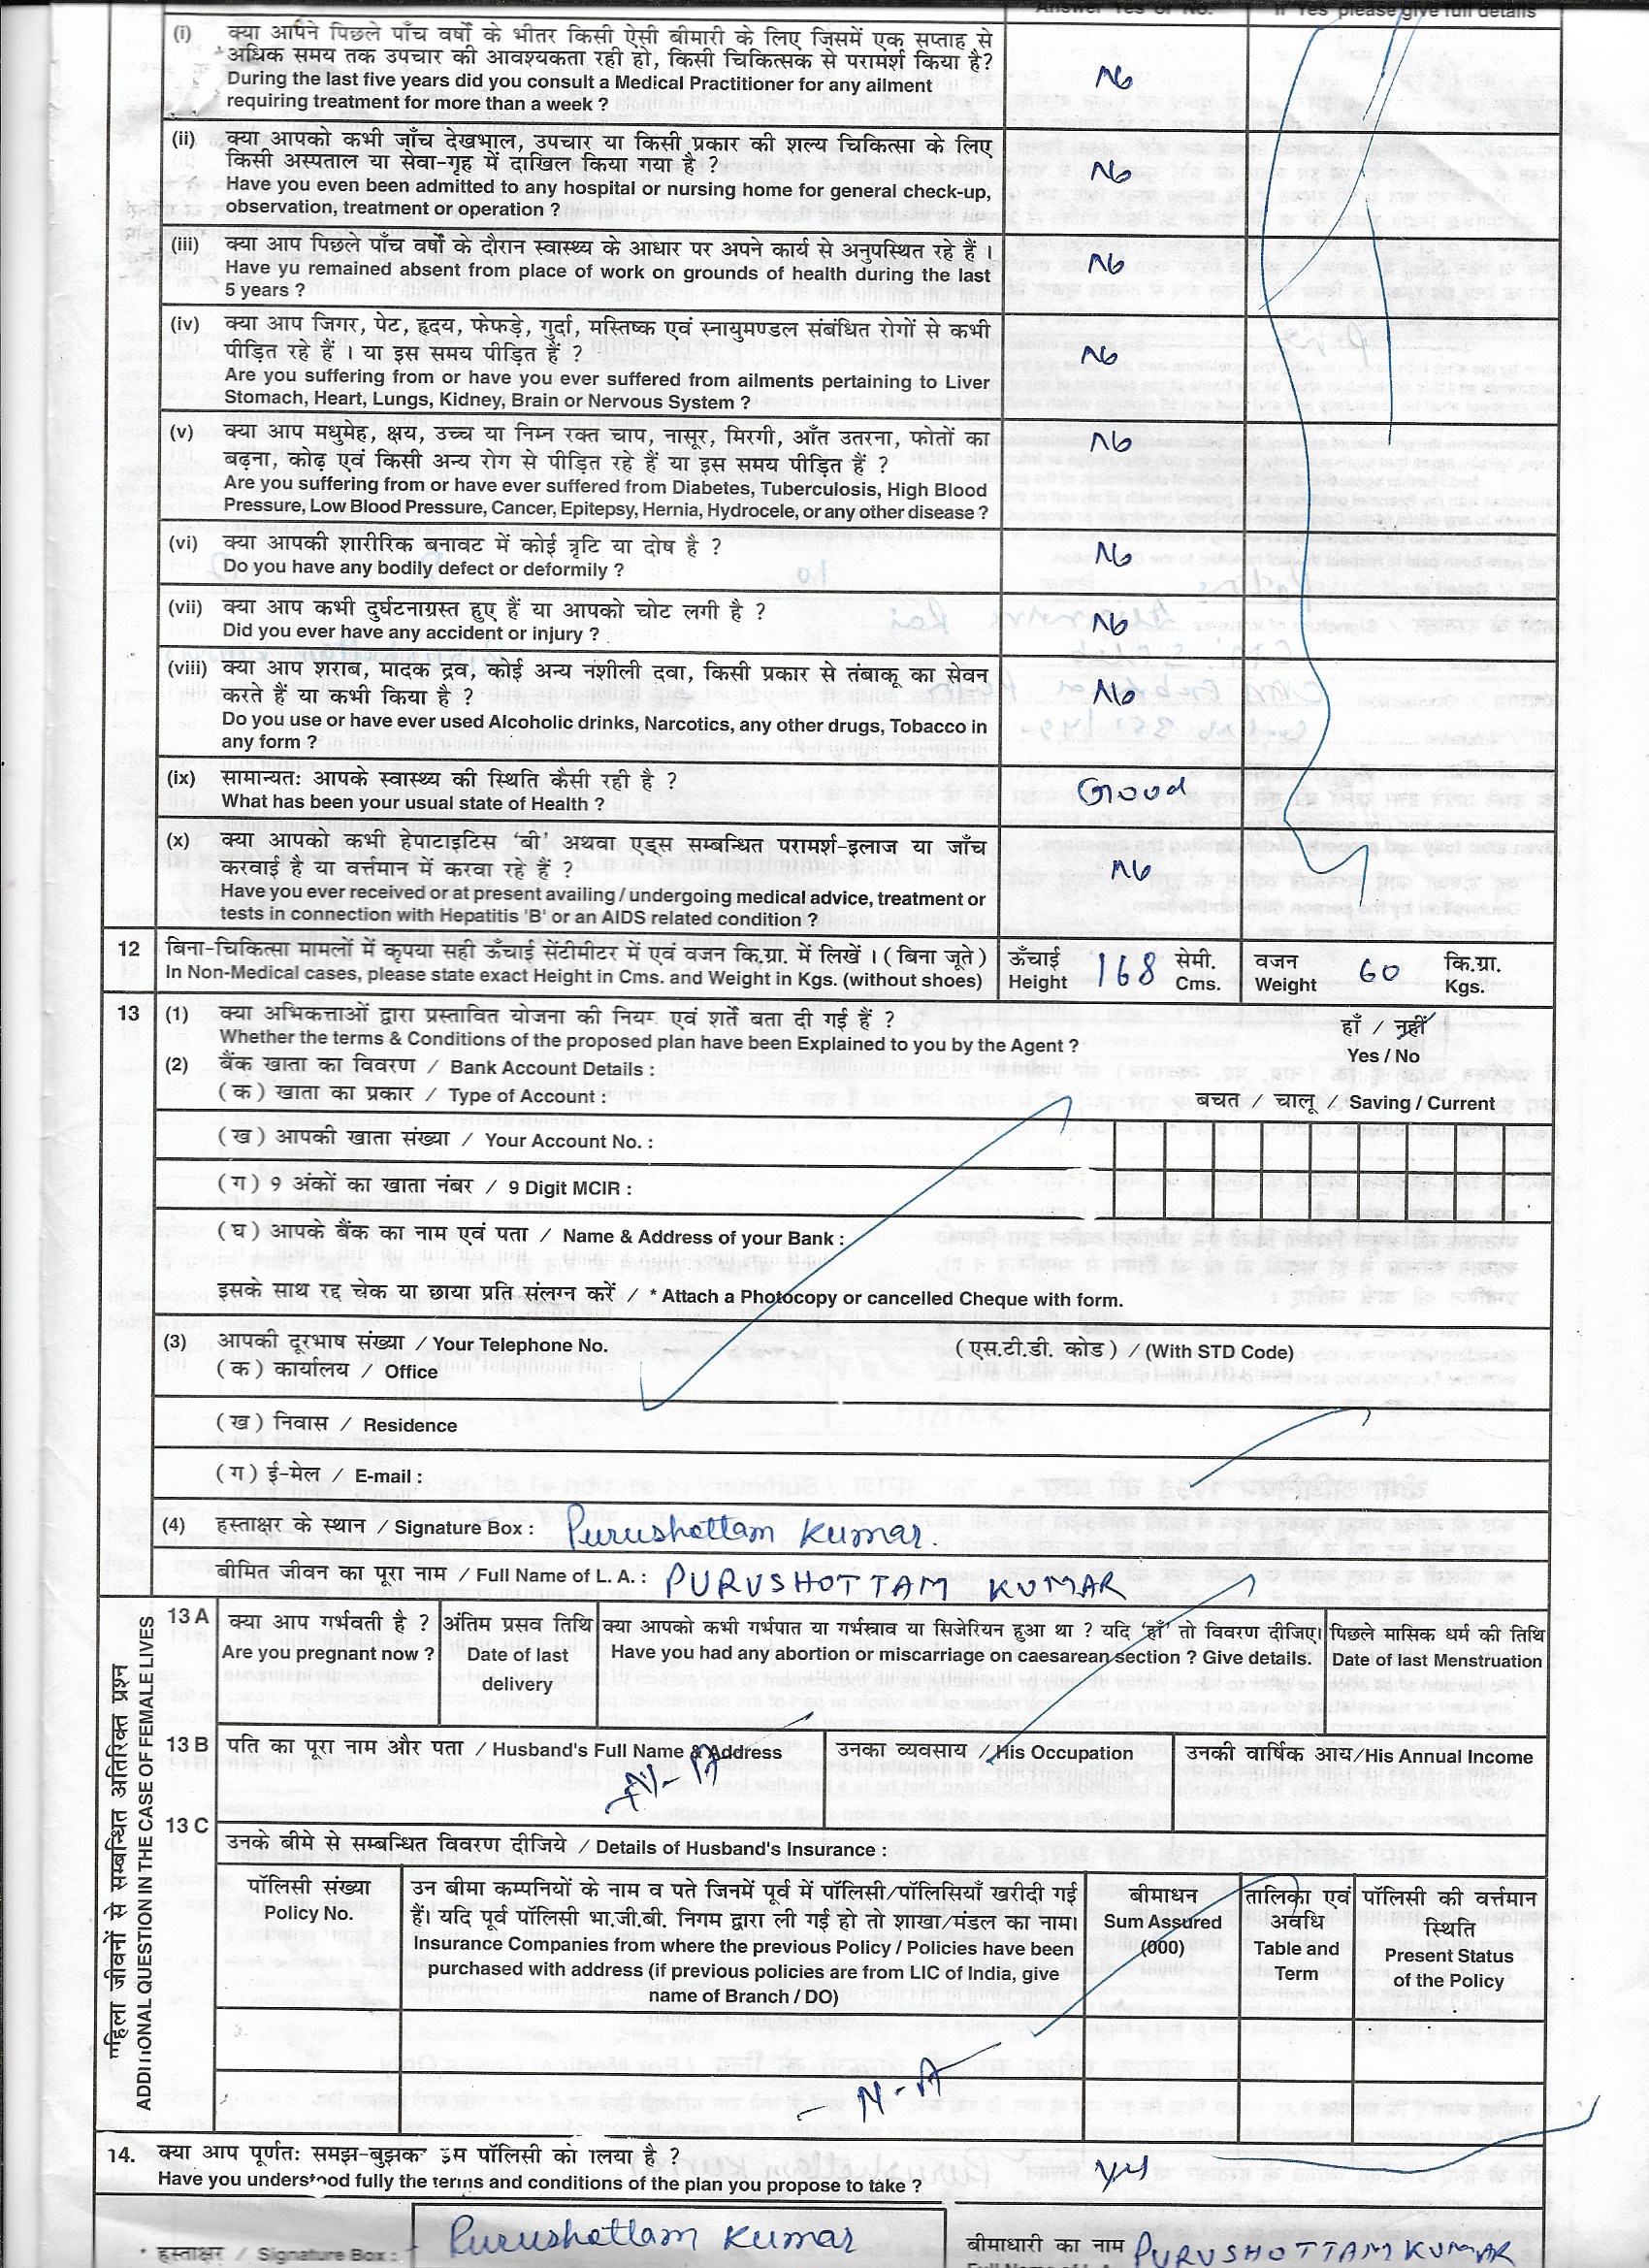 Answer Yes or No. If Yes please give full details
(i) क्या आपने पिछले पाँच वर्षों के भीतर किसी ऐसी बीमारी के लिए जिसमें एक सप्ताह से
अधिक समय तक उपचार की आवश्यकता रही हो, किसी चिकित्सक से परामर्श किया है?
During the last five years did you consult a Medical Practitioner for any ailment
requiring treatment for more than a week ?
No
(ii) क्या आपको कभी जाँच देखभाल, उपचार या किसी प्रकार की शल्य चिकित्सा के लिए
किसी अस्पताल या सेवा-गृह में दाखिल किया गया है ?
Have you even been admitted to any hospital or nursing home for general check-up,
observation, treatment or operation ?
No
(iii) क्या आप पिछले पाँच वर्षों के दौरान स्वास्थ्य के आधार पर अपने कार्य से अनुपस्थित रहे हैं ।
Have yu remained absent from place of work on grounds of health during the last
5 years ?
No
(iv) क्या आप जिगर, पेट, हृदय, फेफड़े, गुर्दा, मस्तिष्क एवं स्नायुमण्डल संबंधित रोगों से कभी
पीड़ित रहे हैं । या इस समय पीड़ित हैं ?
Are you suffering from or have you ever suffered from ailments pertaining to Liver
Stomach, Heart, Lungs, Kidney, Brain or Nervous System ?
No
(v) क्या आप मधुमेह, क्षय, उच्च या निम्न रक्त चाप, नासूर, मिरगी, आँत उतरना, फोतों का
बढ़ना, कोढ़ एवं किसी अन्य रोग से पीड़ित रहे हैं या इस समय पीड़ित हैं ?
Are you suffering from or have ever suffered from Diabetes, Tuberculosis, High Blood
Pressure, Low Blood Pressure, Cancer, Epitepsy, Hernia, Hydrocele, or any other disease ?
No
(vi) क्या आपकी शारीरिक बनावट में कोई त्रृटि या दोष है ?
Do you have any bodily defect or deformily ?
No
(vii) क्या आप कभी दुर्घटनाग्रस्त हुए हैं या आपको चोट लगी है ?
Did you ever have any accident or injury ?
No
(viii) क्या आप शराब, मादक द्रव, कोई अन्य नशीली दवा, किसी प्रकार से तंबाकू का सेवन
करते हैं या कभी किया है ?
Do you use or have ever used Alcoholic drinks, Narcotics, any other drugs, Tobacco in
any form ?
No
(ix) सामान्यतः आपके स्वास्थ्य की स्थिति कैसी रही है ?
What has been your usual state of Health ?
Good
(x) क्या आपको कभी हेपाटाइटिस 'बी' अथवा एड्स सम्बन्धित परामर्श-इलाज या जाँच
करवाई है या वर्त्तमान में करवा रहे हैं ?
Have you ever received or at present availing / undergoing medical advice, treatment or
tests in connection with Hepatitis 'B' or an AIDS related condition ?
No
12 बिना-चिकित्सा मामलों में कृपया सही ऊँचाई सेंटीमीटर में एवं वजन कि.ग्रा. में लिखें । ( बिना जूते )
In Non-Medical cases, please state exact Height in Cms. and Weight in Kgs. (without shoes)
ऊँचाई 168 सेमी. वजन 60 कि.ग्रा.
Height Cms. Weight Kgs.
13 (1) क्या अभिकत्ताओं द्वारा प्रस्तावित योजना की नियम एवं शर्तें बता दी गई हैं ? हाँ / नहीं
Whether the terms & Conditions of the proposed plan have been Explained to you by the Agent ? Yes / No
(2) बैंक खाता का विवरण / Bank Account Details :
( क ) खाता का प्रकार / Type of Account : बचत / चालू / Saving / Current
( ख ) आपकी खाता संख्या / Your Account No. :
( ग ) 9 अंकों का खाता नंबर / 9 Digit MCIR :
( घ ) आपके बैंक का नाम एवं पता / Name & Address of your Bank :
इसके साथ रद्द चेक या छाया प्रति संलग्न करें / * Attach a Photocopy or cancelled Cheque with form.
(3) आपकी दूरभाष संख्या / Your Telephone No. ( एस.टी.डी. कोड ) / (With STD Code)
( क ) कार्यालय / Office
( ख ) निवास / Residence
( ग ) ई-मेल / E-mail :
(4) हस्ताक्षर के स्थान / Signature Box : Purushottam Kumar.
बीमित जीवन का पूरा नाम / Full Name of L. A. : PURUSHOTTAM KUMAR
महिला जीवनों से सम्बन्धित अतिरिक्त प्रश्न
ADDITIONAL QUESTION IN THE CASE OF FEMALE LIVES
13 A क्या आप गर्भवती है ? अंतिम प्रसव तिथि क्या आपको कभी गर्भपात या गर्भस्राव या सिजेरियन हुआ था ? यदि 'हाँ' तो विवरण दीजिए। पिछले मासिक धर्म की तिथि
Are you pregnant now ? Date of last Have you had any abortion or miscarriage on caesarean section ? Give details. Date of last Menstruation
delivery
13 B पति का पूरा नाम और पता / Husband's Full Name & Address उनका व्यवसाय / His Occupation उनकी वार्षिक आय/His Annual Income
N-A
13 C
उनके बीमे से सम्बन्धित विवरण दीजिये / Details of Husband's Insurance :
पॉलिसी संख्या
Policy No.
उन बीमा कम्पनियों के नाम व पते जिनमें पूर्व में पॉलिसी/पॉलिसियाँ खरीदी गई
हैं। यदि पूर्व पॉलिसी भा.जी.बी. निगम द्वारा ली गई हो तो शाखा/मंडल का नाम।
Insurance Companies from where the previous Policy / Policies have been
purchased with address (if previous policies are from LIC of India, give
name of Branch / DO)
बीमाधन
Sum Assured
(000)
तालिका एवं
अवधि
Table and
Term
पॉलिसी की वर्त्तमान
स्थिति
Present Status
of the Policy
N-A
14. क्या आप पूर्णतः समझ-बुझकर इस पॉलिसी को लिया है ?
Have you understood fully the terms and conditions of the plan you propose to take ?
yes
* हस्ताक्षर / Signature Box : Purushottam Kumar बीमाधारी का नाम PURUSHOTTAM KUMAR